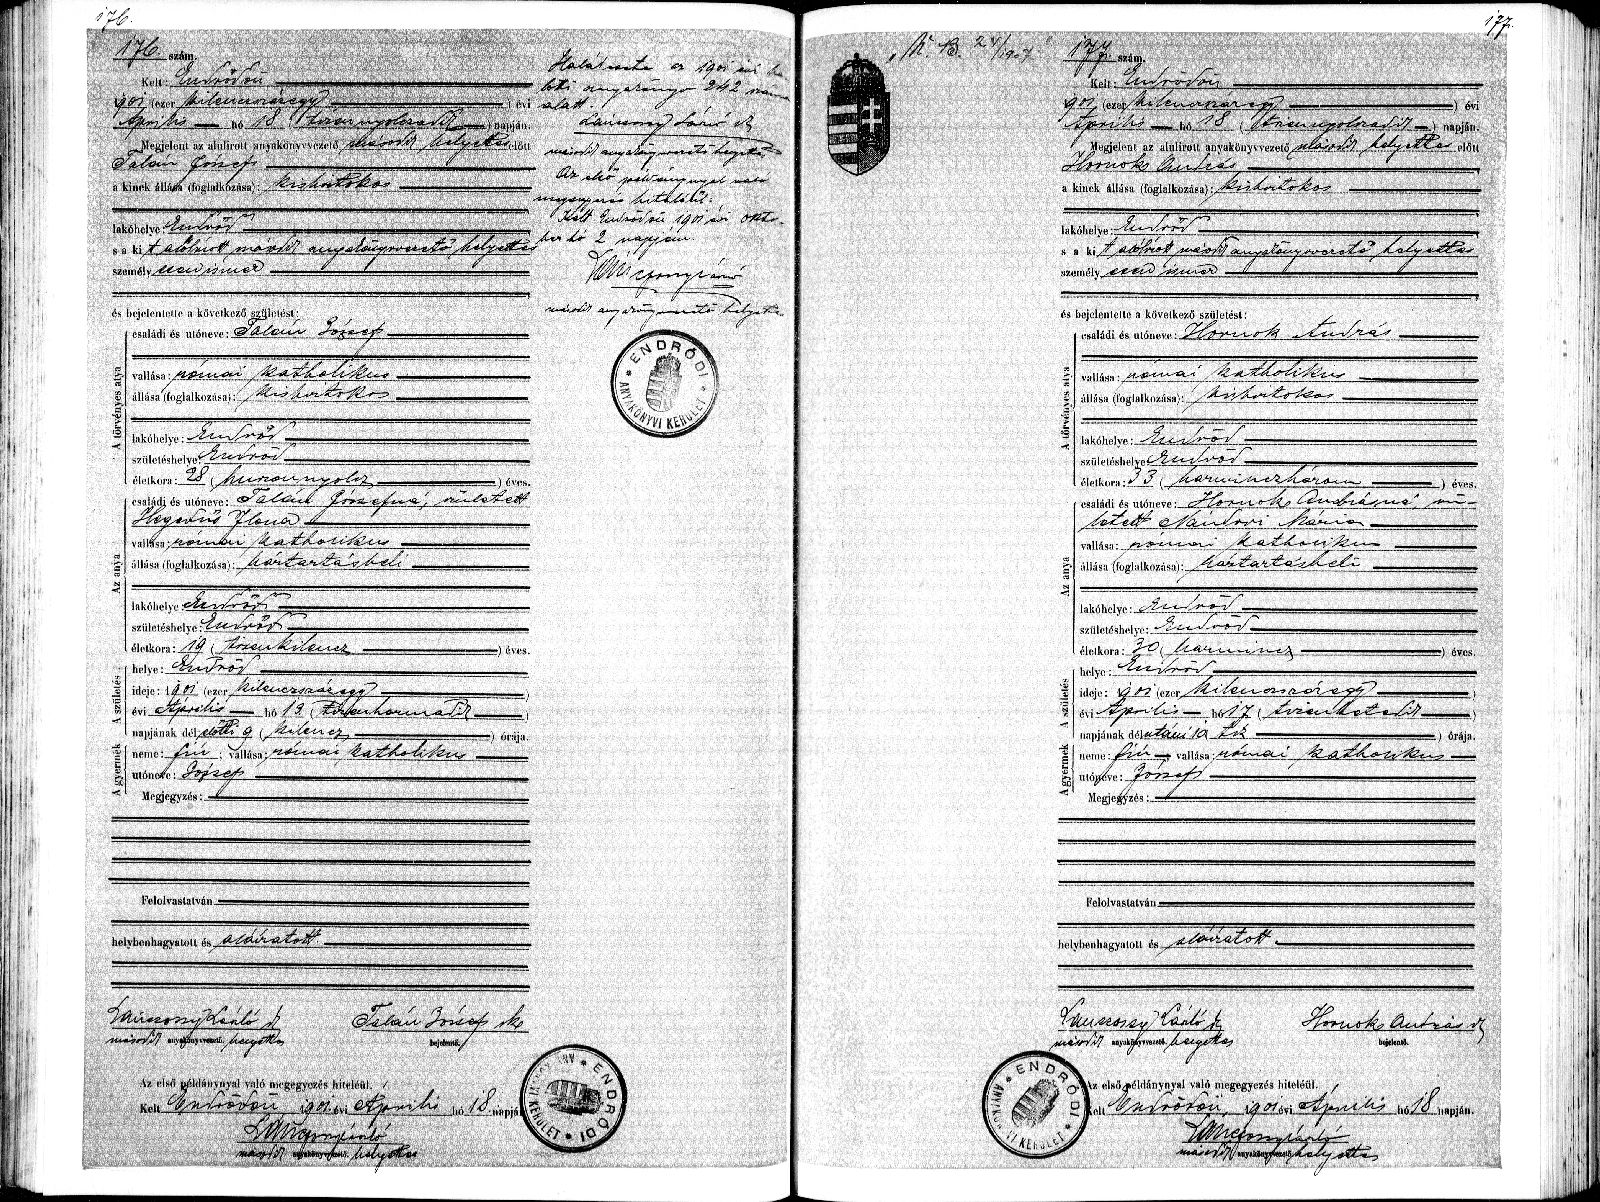 176.
176. szám.
Kelt: Endrődön
1901 (ezer kilenczszázegy) évi
Április hó 18 (tizennyolczadik) napján.
Megjelent az alulirott anyakönyvvezető második helyettes előtt
Talán József
a kinek állása (foglalkozása): kisbirtokos
lakóhelye Endrőd
s a kit alólirott második anyakönyvvezető helyettes
személyesen ismer
és bejelentette a következő születést:
A törvényes atya
családi és utóneve: Talán József
vallása: római katholikus
állása (foglalkozása): kisbirtokos
lakóhelye: Endrőd
születéshelye: Endrőd
életkora: 28 (huszonnyolcz) éves.
Az anya
családi és utóneve: Talán Józsefné, született
Hegedűs Ilona
vallása: római katholikus
állása (foglalkozása): háztartásbeli
lakóhelye: Endrőd
születéshelye: Endrőd
életkora: 19 (tizenkilencz) éves.
A születés
helye: Endrőd
ideje: 1901 (ezer kilenczszázegy)
évi Április hó 13 (tizenharmadik)
napjának dél előtti 9 (kilencz) órája.
A gyermek
neme: fiú; vallása: római katholikus
utóneve: József
Megjegyzés:
Felolvastatván
helybenhagyatott és aláiratott
Lánczonyi László
második anyakönyvvezető. helyettes
Talán József sk
bejelentő.
Az első példánynyal való megegyezés hiteléül.
Kelt Endrődön, 1901 évi Április hó 18 napján
második anyakönyvvezető. helyettes
ENDRŐDI ANYAKÖNYVI KERÜLET
az 1901 évi
242 szám
alatt.
második anyakönyvvezető helyettes
Az első példánynyal való
megegyezés hiteléül.
Kelt Endrődön 1901 évi Októ-
ber hó 2 napján.
második anyakönyvvezető helyettes
ENDRŐDI ANYAKÖNYVI KERÜLET
177.
177. szám.
Kelt: Endrődön
1901 (ezer kilenczszázegy) évi
Április hó 18 (tizennyolczadik) napján.
Megjelent az alulirott anyakönyvvezető második helyettes előtt
Hornok András
a kinek állása (foglalkozása): kisbirtokos
lakóhelye: Endrőd
s a kit alólirott második anyakönyvvezető helyettes
személyesen ismer
és bejelentette a következő születést:
A törvényes atya
családi és utóneve: Hornok András
vallása: római katholikus
állása (foglalkozása): kisbirtokos
lakóhelye: Endrőd
születéshelye: Endrőd
életkora: 33 (harminczhárom) éves.
Az anya
családi és utóneve: Hornok Andrásné, szü-
letett Nándori Mária
vallása: római katholikus
állása (foglalkozása): háztartásbeli
lakóhelye: Endrőd
születéshelye: Endrőd
életkora: 30 (harmincz) éves.
A születés
helye: Endrőd
ideje: 1901 (ezer kilenczszázegy)
évi Április hó 17 (tizenhetedik)
napjának dél utáni 10 tiz órája.
A gyermek
neme: fiú vallása: római katholikus
utóneve: József
Megjegyzés:
Felolvastatván
helybenhagyatott és aláiratott
második anyakönyvvezető. helyettes
Hornok András
bejelentő.
Az első példánynyal való megegyezés hiteléül.
Kelt Endrődön, 1901 évi Április hó 18 napján.
második anyakönyvvezető. helyettes
ENDRŐDI ANYAKÖNYVI KERÜLET